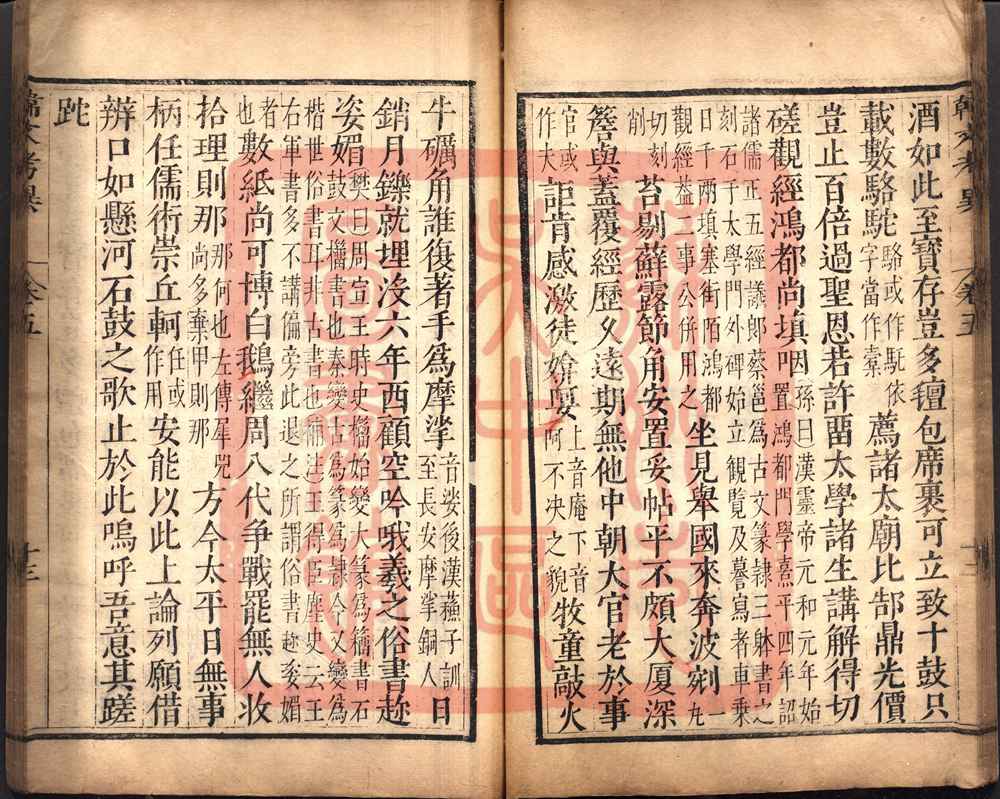 酒如此至寶存豈多氊包席裹可立致十鼓只
載數駱駝駱或作馲依字當作橐薦諸太廟比郜鼎光價
豈止百倍過聖恩若許畱太學諸生講解得切
磋觀經鴻都尚填咽孫曰漢靈帝元和元年始置鴻都門學熹平四年詔
諸儒正五經議郎蔡邕爲古文篆隸三體書之刻石于太學門外碑始立觀覽及摹寫者車乘
日千兩填塞街陌鴻都觀經益二事公併用之坐見舉國來奔波剜一丸
切刻削苔剔蘚露節角安置妥帖平不頗大厦深
簷與蓋覆經歷久遠期無他中朝大官老於事
官或作大詎肯感激徒媕婀上音庵下音阿不决之貌牧童敲火
牛礪角誰復著手爲摩挲音娑後漢薊子訓至長安摩挲銅人日
銷月鑠就埋沒六年西顧空吟哦羲之俗書趂
姿媚樊曰周宣王時史籀始變大篆爲籀書石鼓文籀書也秦變古爲篆爲隸今又變爲
楷世俗書耳非古書也補注王得臣麈史云王右軍書多不講偏旁此退之所謂俗書趂姿媚
者也數紙尚可博白鵝繼周八代争戰罷無人收
拾理則那那何也左傳犀兕尚多棄甲則那方今太平日無事
柄任儒術崇丘軻任或作用安能以此上論列願借
辨口如懸河石鼓之歌止於此嗚呼吾意其蹉
跎
韓文考異
卷五
十三